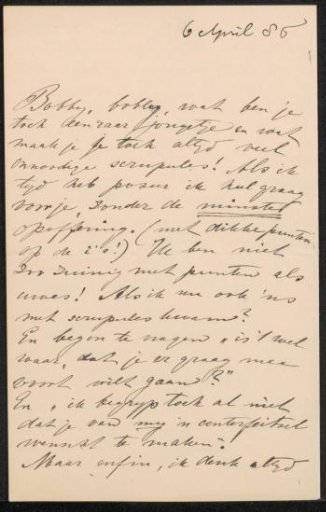 6 April 86
Bobby, bobby, wat ben je
toch een raar jongetje en wat
maak je je toch altyd veel
onnoodige scrupules! Als ik
tyd heb poseer ik heel graag
voor je, zonder de minste
opoffering. (met dikke punten
op de i's!) Ik ben niet
zoo zuinig met punten als
u! Als ik nu ook 'ns
met scrupules kwam?
En begon te vragen „is 't wel
waar, dat je er graag mee
voort wilt gaan?"
En „ik begryp toch al niet
dat je van my 'n conterfeitsel
wenscht te maken".
Maar enfin, ik denk altyd